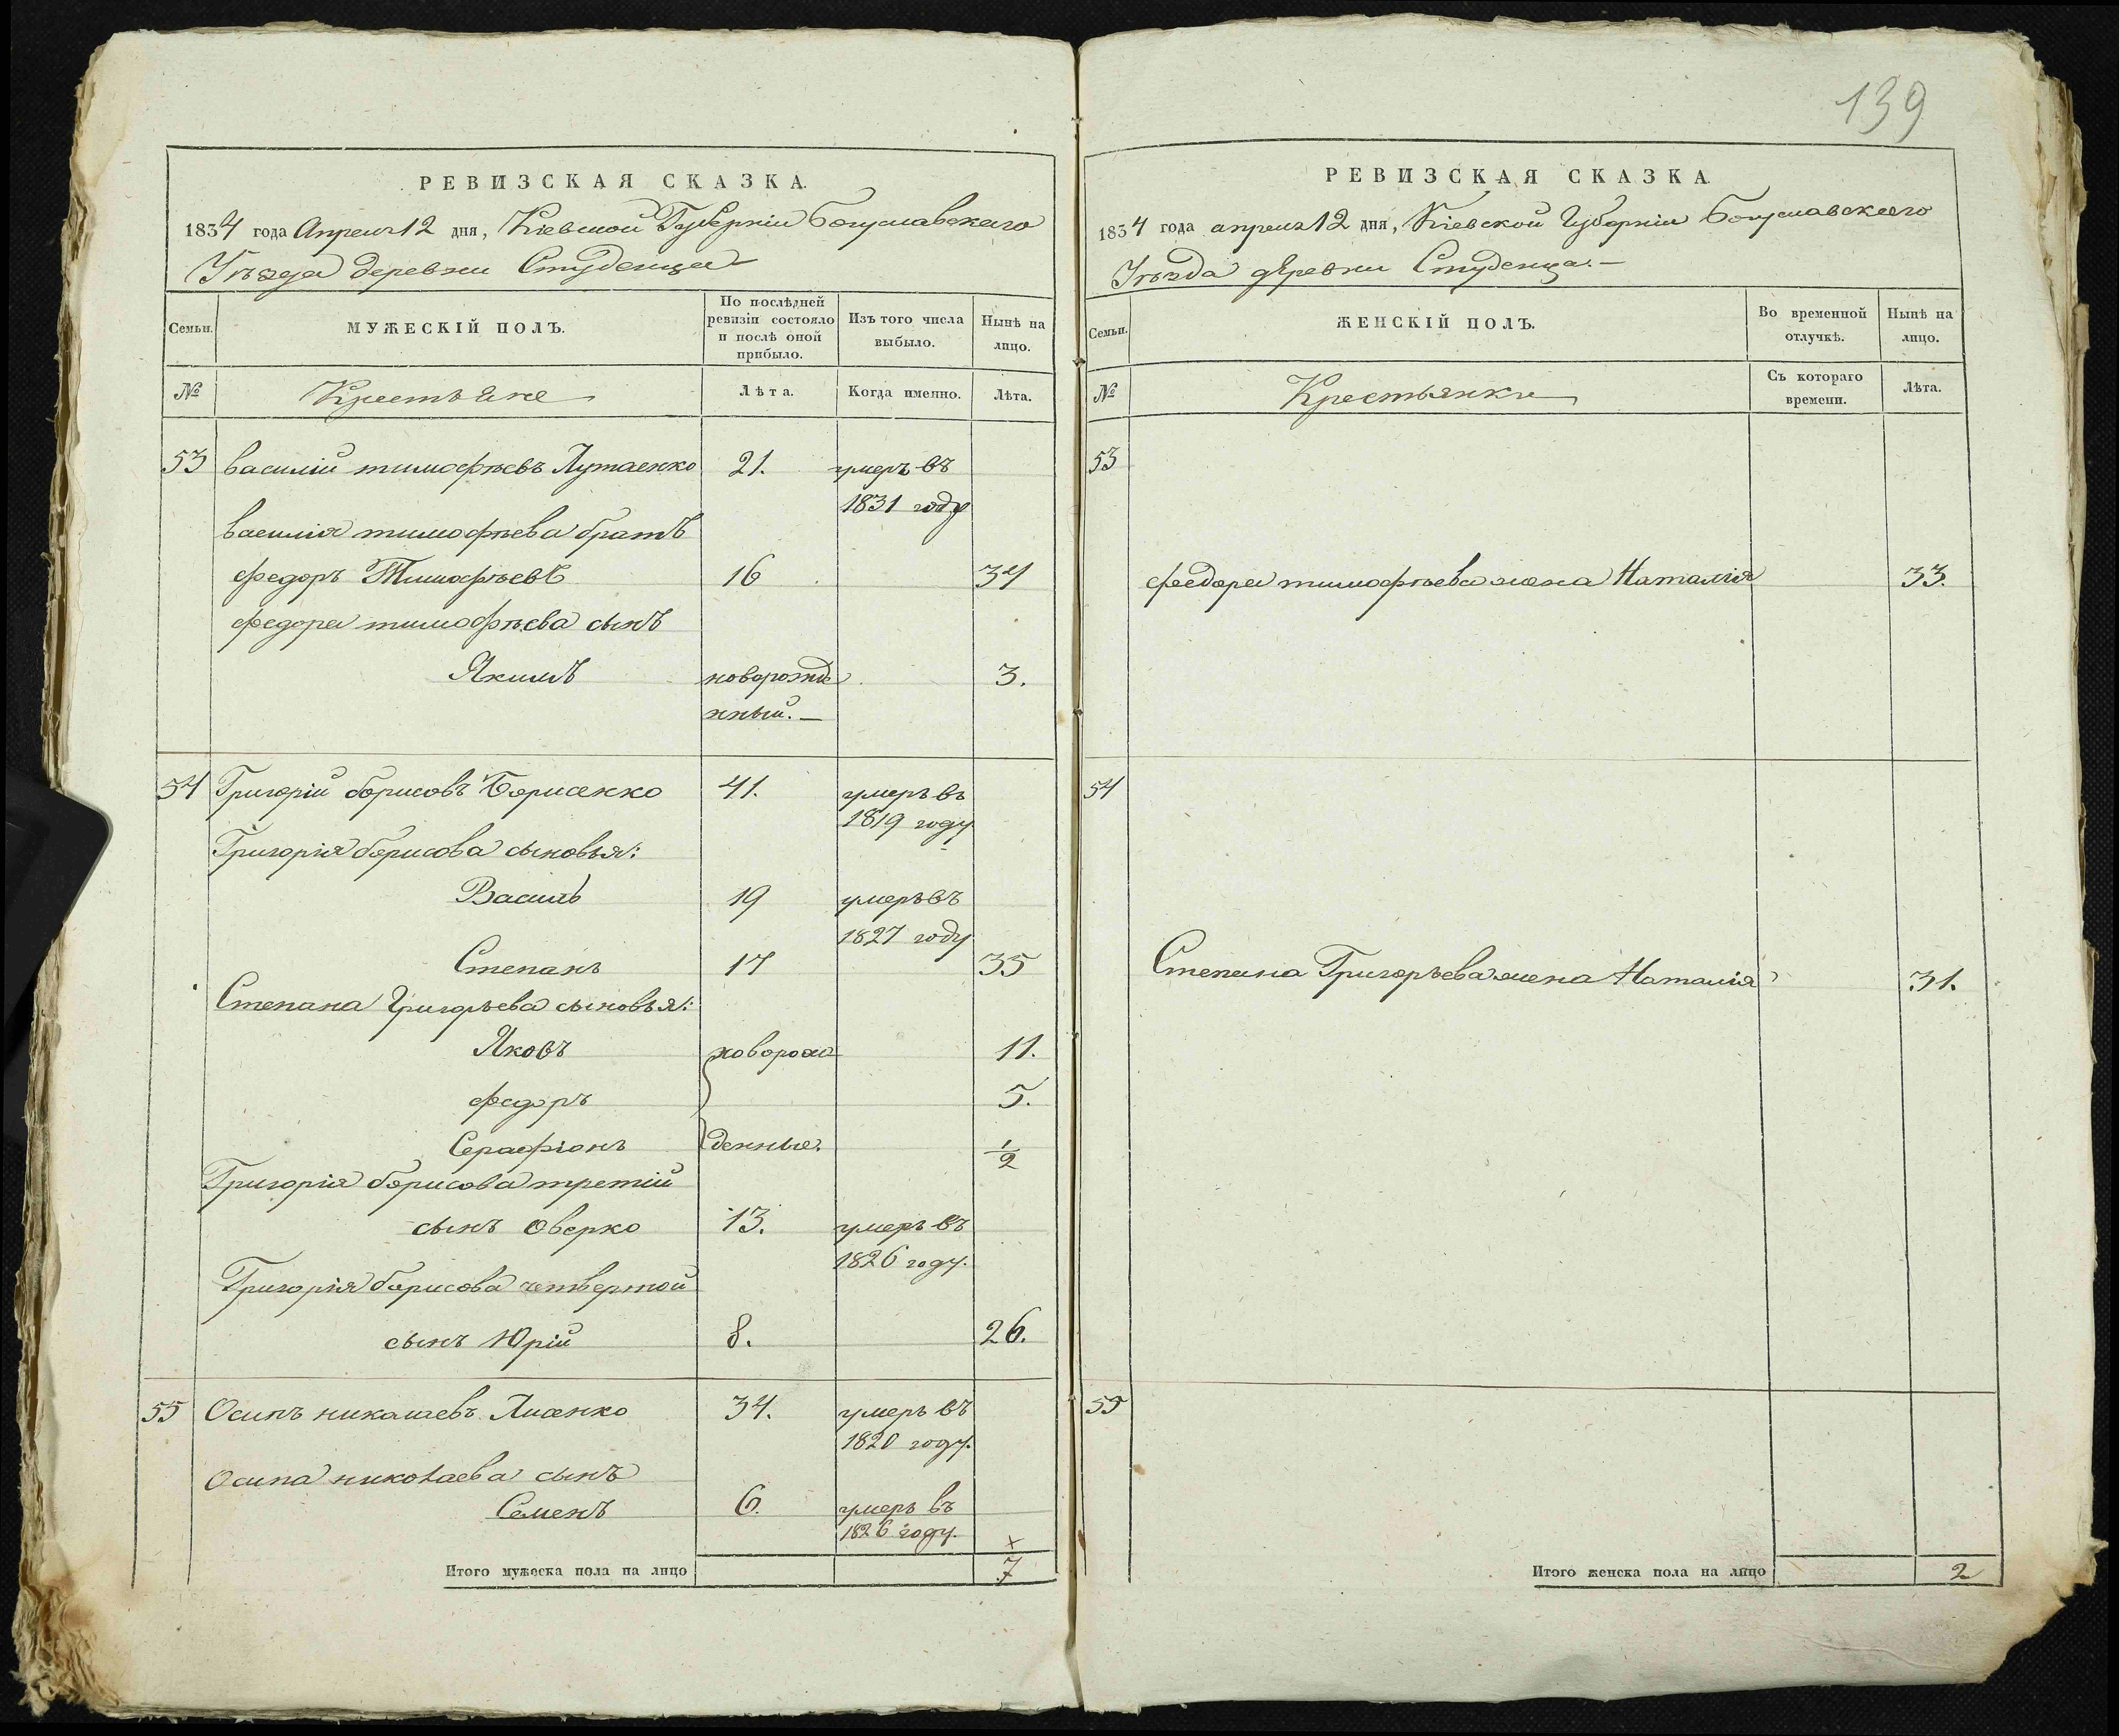 РЕВИЗСКАЯ СКАЗКА.
1834 года Апреля 12 дня, Кіевской Губерніи Богуславскаго
Уѣзда деревни Студенца
Семьи.
МУЖЕСКІЙ ПОЛЪ.
По послѣдней ревизіи состояло и послѣ оной прибыло.
Изъ того числа выбыло.
Нынѣ на лицо.
№
Крестьяне
Лѣта.
Когда именно.
Лѣта.
53 василій тимофѣевъ Лутаенко 21. умеръ въ
1831 году
василія тимофѣева братъ
федоръ Тимофѣевъ 16 34
федора тимофѣева сынъ
Якимъ новорожде 3.
нный.—
54 Григорій борисовъ Борисенко 41. умеръ въ
1819 году
Григорія борисова сыновья:
Василь 19 умеръ въ
1827 году
Степанъ 17 35
Степана Григорьева сыновья:
Яковъ новорож 11.
федоръ 5.
Серафіонъ денные. 1/2
Григорія борисова третій
сынъ Оверко 13. умеръ въ
1826 году.
Григорія борисова четвертой
сынъ Юрій 8. 26.
55 Осипъ николаевъ Лисенко 34. умеръ въ
1820 году.
Осипа николаева сынъ
Семенъ 6. умеръ въ
1826 году. х
Итого мужеска пола на лицо 7
139
РЕВИЗСКАЯ СКАЗКА
1834 года апреля 12 дня, Кіевской Губерніи Богуславскаго
Уѣзда деревни Студенца.—
Семьи.
ЖЕНСКІЙ ПОЛЪ.
Во временной отлучкѣ.
Нынѣ на лицо.
№
Крестьянки
Съ котораго времени.
Лѣта.
53
федора тимофѣева жена Наталія 33.
54
Степана Григорьева жена Наталія 31.
55
Итого женска пола на лицо 2